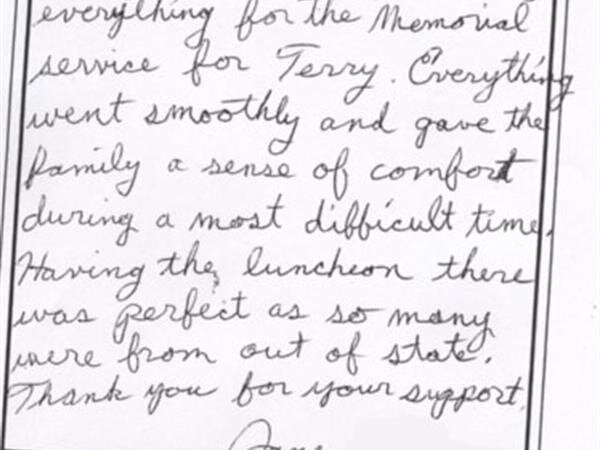 everything for the Memorial
service for Terry. Everything
went smoothly and gave the
family a sense of comfort
during a most difficult time.
Having the luncheon there
was perfect as so many
were from out of state.
Thank you for your support.